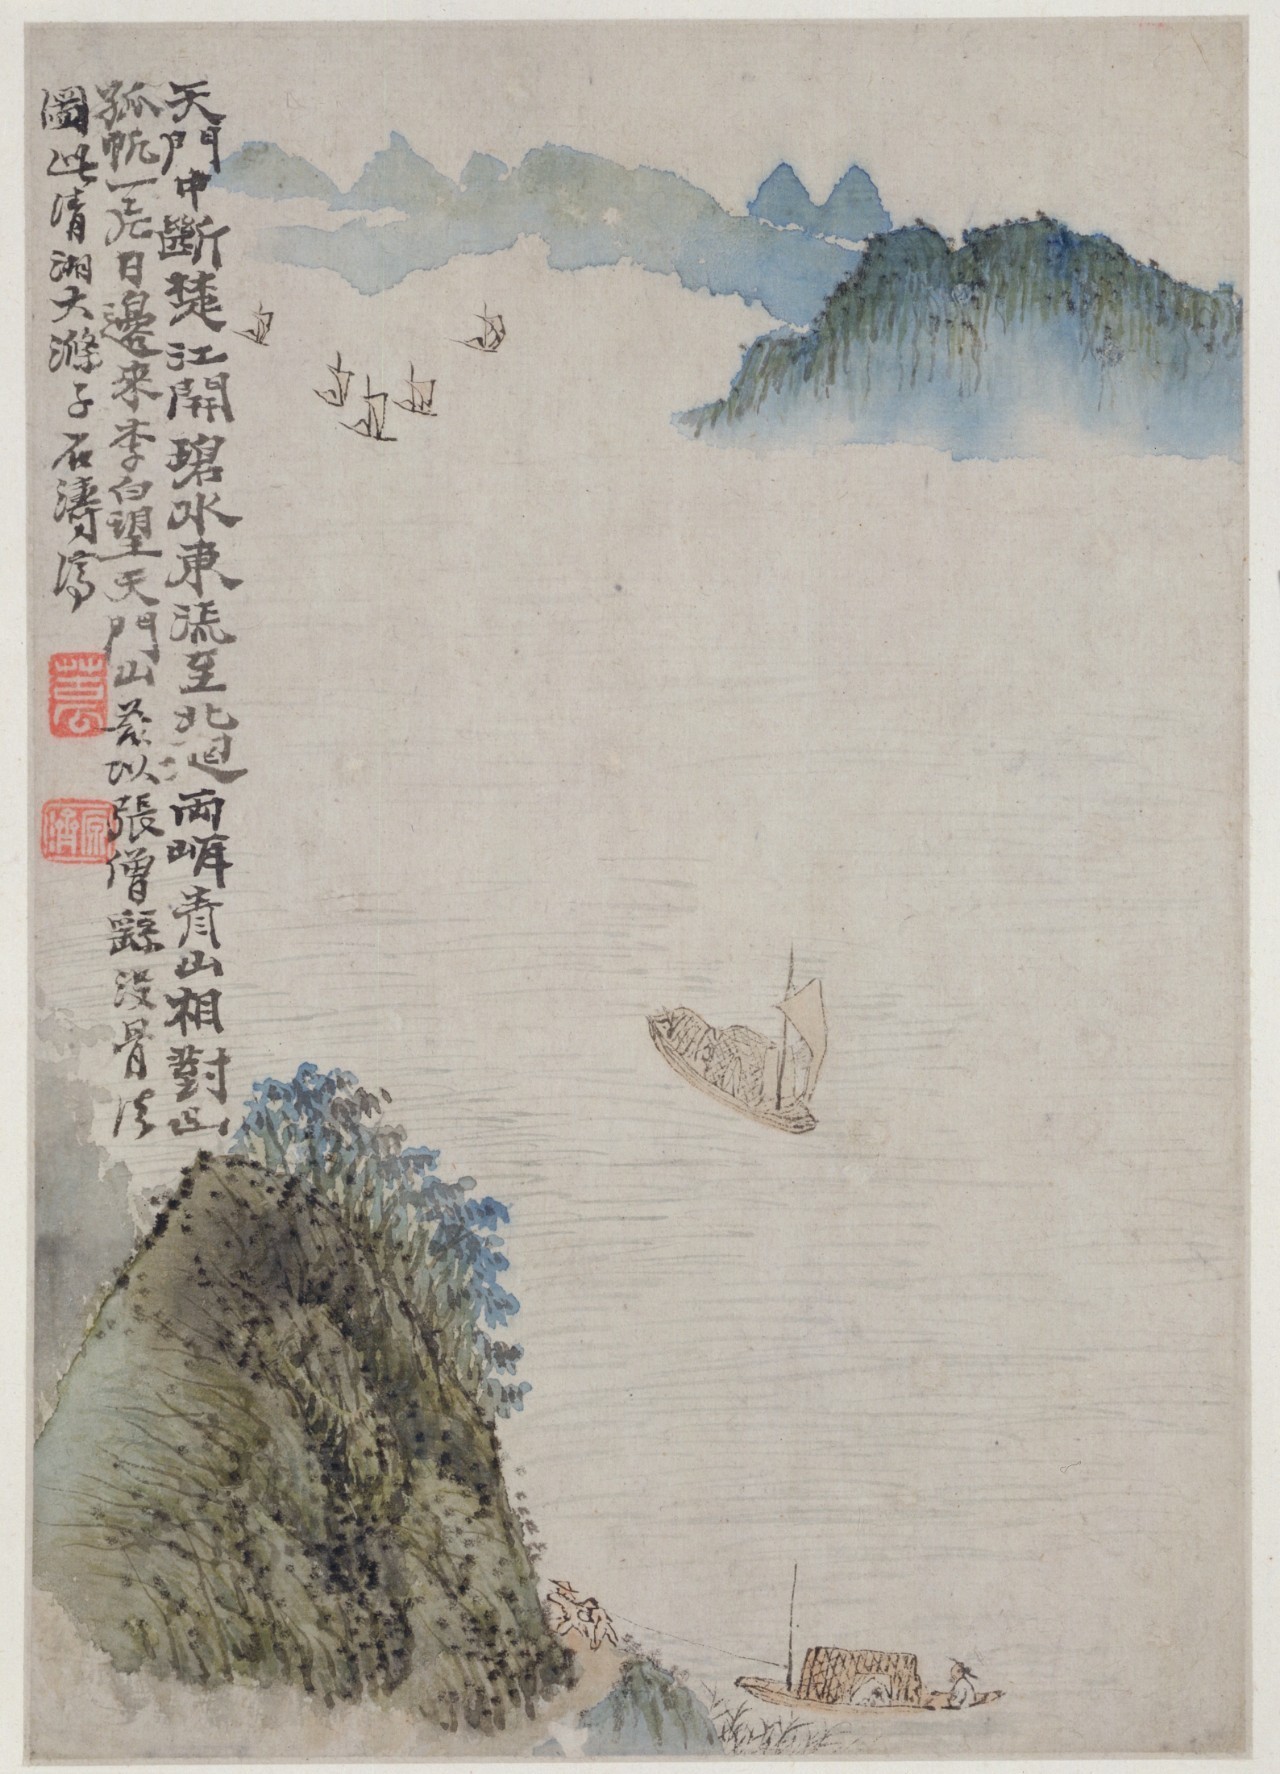 天門中斷楚江開碧水東流至北迴兩崕青山相對出
孤帆一片日邊來李白望天門山茲以張僧繇沒骨法
圖此清湘大滌子石濤濟
苦瓜
原濟